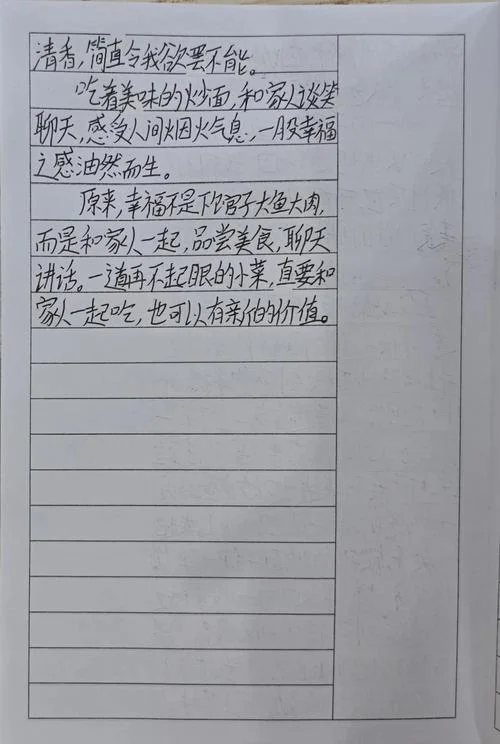 清香，简直令我欲罢不能。
吃着美味的炒面，和家人谈笑
聊天，感受人间烟火气息，一股幸福
之感油然而生。
原来，幸福不是下馆子大鱼大肉，
而是和家人一起，品尝美食，聊天
讲话。一道再不起眼的小菜，直要和
家人一起吃，也可以有新的价值。